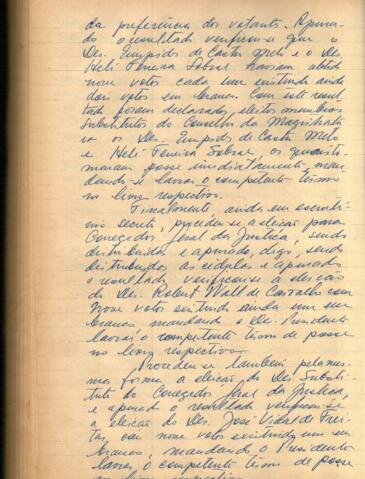 da preferência dos votantes. Apura-
do o resultado verificou-se que o
Des. Eurípides de Castro Melo e o Des.
Heli Ferreira Sobral haviam obtido
nove votos cada um existindo ainda
dois votos em branco. Com este resul-
tado foram declarados eleitos membros
substitutos do Conselho da Magistratu-
ra os Des. Eurípides de Castro Melo
e Heli Ferreira Sobral, os quais to-
maram posse imediatamente, man-
dando-se lavrar o competente termo
no livro respectivo.
Finalmente, ainda em escrutí-
nio secreto, procedeu-se a eleição para
Corregedor Geral da Justiça, sendo
distribuidas e apurado, digo, sendo
distribuidos as cédulas e apurado
o resultado verificou-se a eleição
do Des. Robert Wall de Carvalho com
nove votos existindo ainda um em
branco, mandando o Des. Presidente
lavrar o competente termo de posse
no livro respectivo.
Procedeu-se também pela mes-
ma forma a eleição do Des. Substi-
tuto do Corregedor Geral da Justiça,
e apurado o resultado verificou-se
a eleição do Des. José Vidal de Frei-
tas, com nove votos existindo um em
branco, mandando o Presidente
lavrar, o competente termo de posse
no livro respectivo